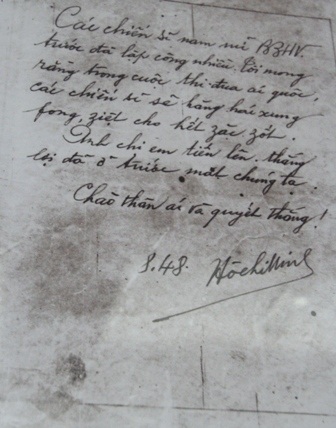 Các chiến sĩ nam nữ BZHV.
trước đã lập công nhiều tôi mong
rằng trong cuộc thi đua ái quốc,
các chiến sĩ sẽ hăng hái xung
fong, ziệt cho hết zặc zốt.
Anh chị em tiến lên. thắng
lợi đã ở trước mắt chúng ta.
Chào thân ái và quyết thắng!
8.48. HồchíMinh